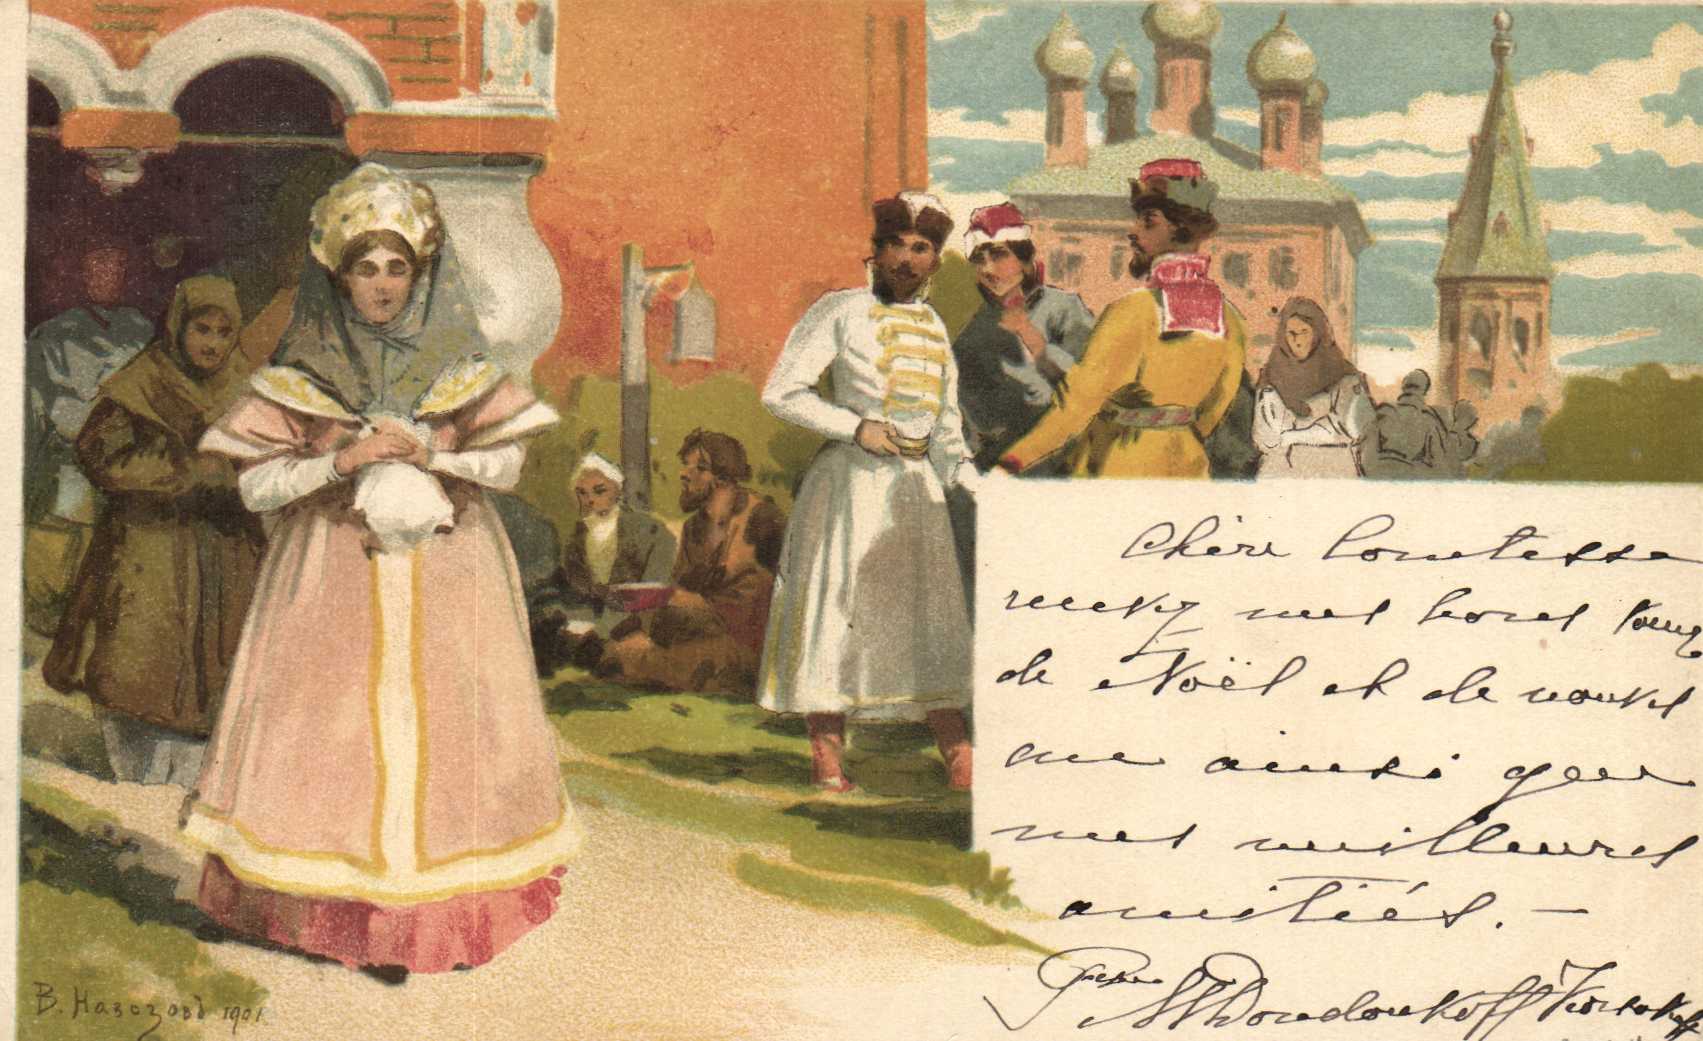 Chère Comtesse
recevez mes bons vœux
de Noël et de nouvel
an ainsi que
mes meilleures
amitiés. —
Dondoukoff Korsakoff
В. Навозовъ 1901